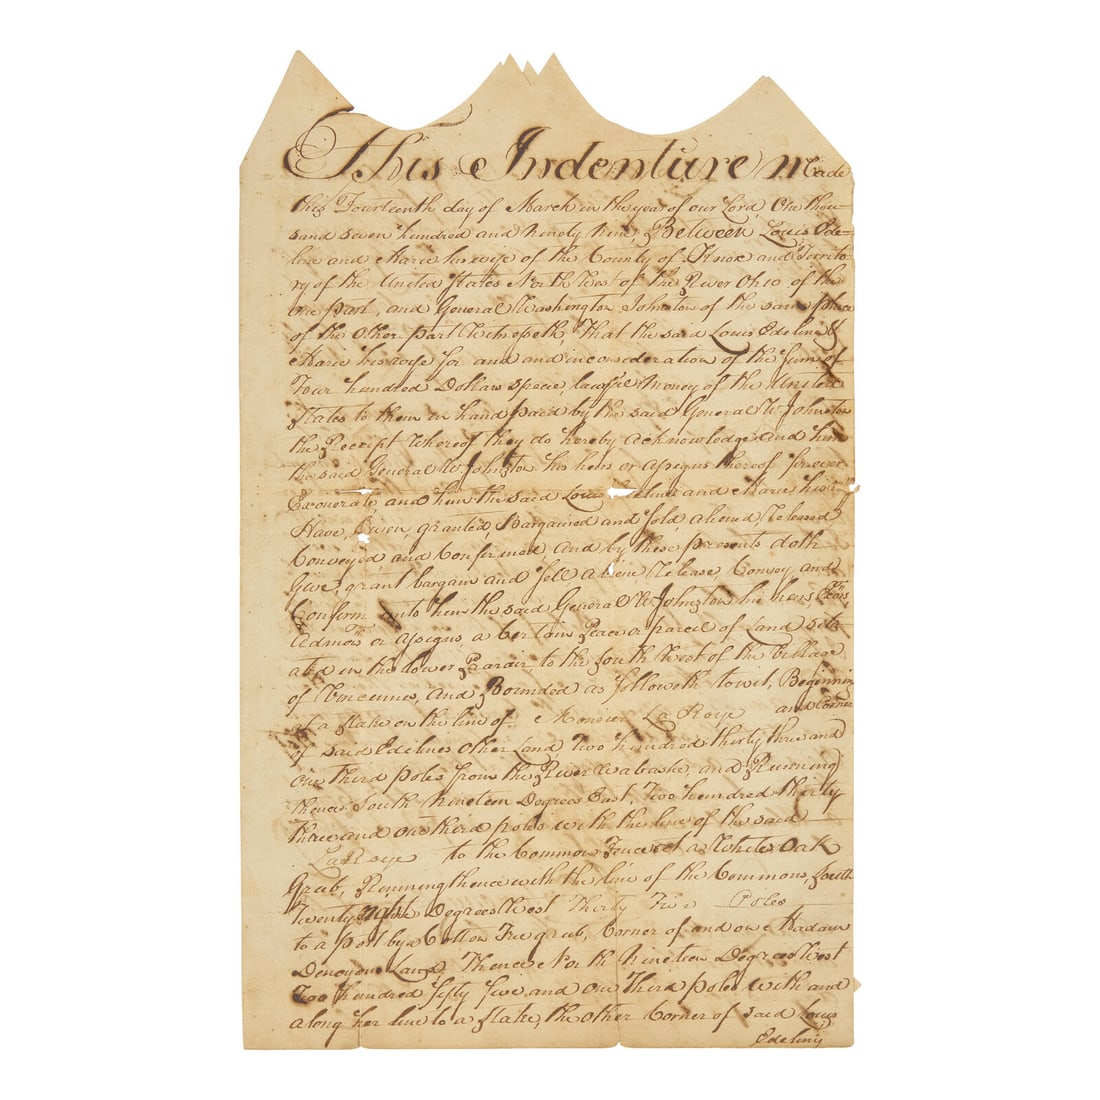 This Indenture made
this Fourteenth day of March in the year of our Lord, One thou-
sand seven hundred and ninty nine, Between Louis Ede-
line and Marie his wife of the County of Knox and Territo
ry of the United States North West of the River Ohio of the
one part and General Washington Johnston of the same place
of the Other part Witnesseth, That the said Louis Edeline &
Marie his wife for and and inconsideration of the sum of
Four hundred Dollars specie, lawful Money of the United
States to them in hand paid by the said General W. Johnston
the Receipt Whereof they do hereby acknowledge and him
the said General W Johnston his heirs or assigns thereof forever
Exonerate, and him the said Louis Edeline and Marie his
Have, Given, granted, Bargained and sold aliened, Released
Conveyed, and Confirmed, and by these presents doth
Give, grant bargain and sell aliene Release Convey and
Confirm unto him the said General W. Johnston his heirs,
Admors or assigns a Certain Peace or parcel of Land Situ
ated in the Lower Prarair to the South West of the Village
of and Bounded as followeth towit, Beginning
at a stake on the line of Monsieur La Roye and Corner
of said Edelines Other Land, Two hundred thirty three and
one third poles from the River Wabashe, and Running
thence South Nineteen Degrees East, Two hundred thirty
three and one third poles with the line of the said
LaRoye to the Common Fence at a White Oak
Grub, Running thence with the line of the Commons, South
Twenty eight Degrees West Thirty Five Poles
to a post by a Cotton Tree grub, Corner of and on Madam
Land, Thence North Nineteen Degrees West
Two hundred fifty five and one Third poles with and
along her line to a Stake, the other Corner of said Louis
Edelines